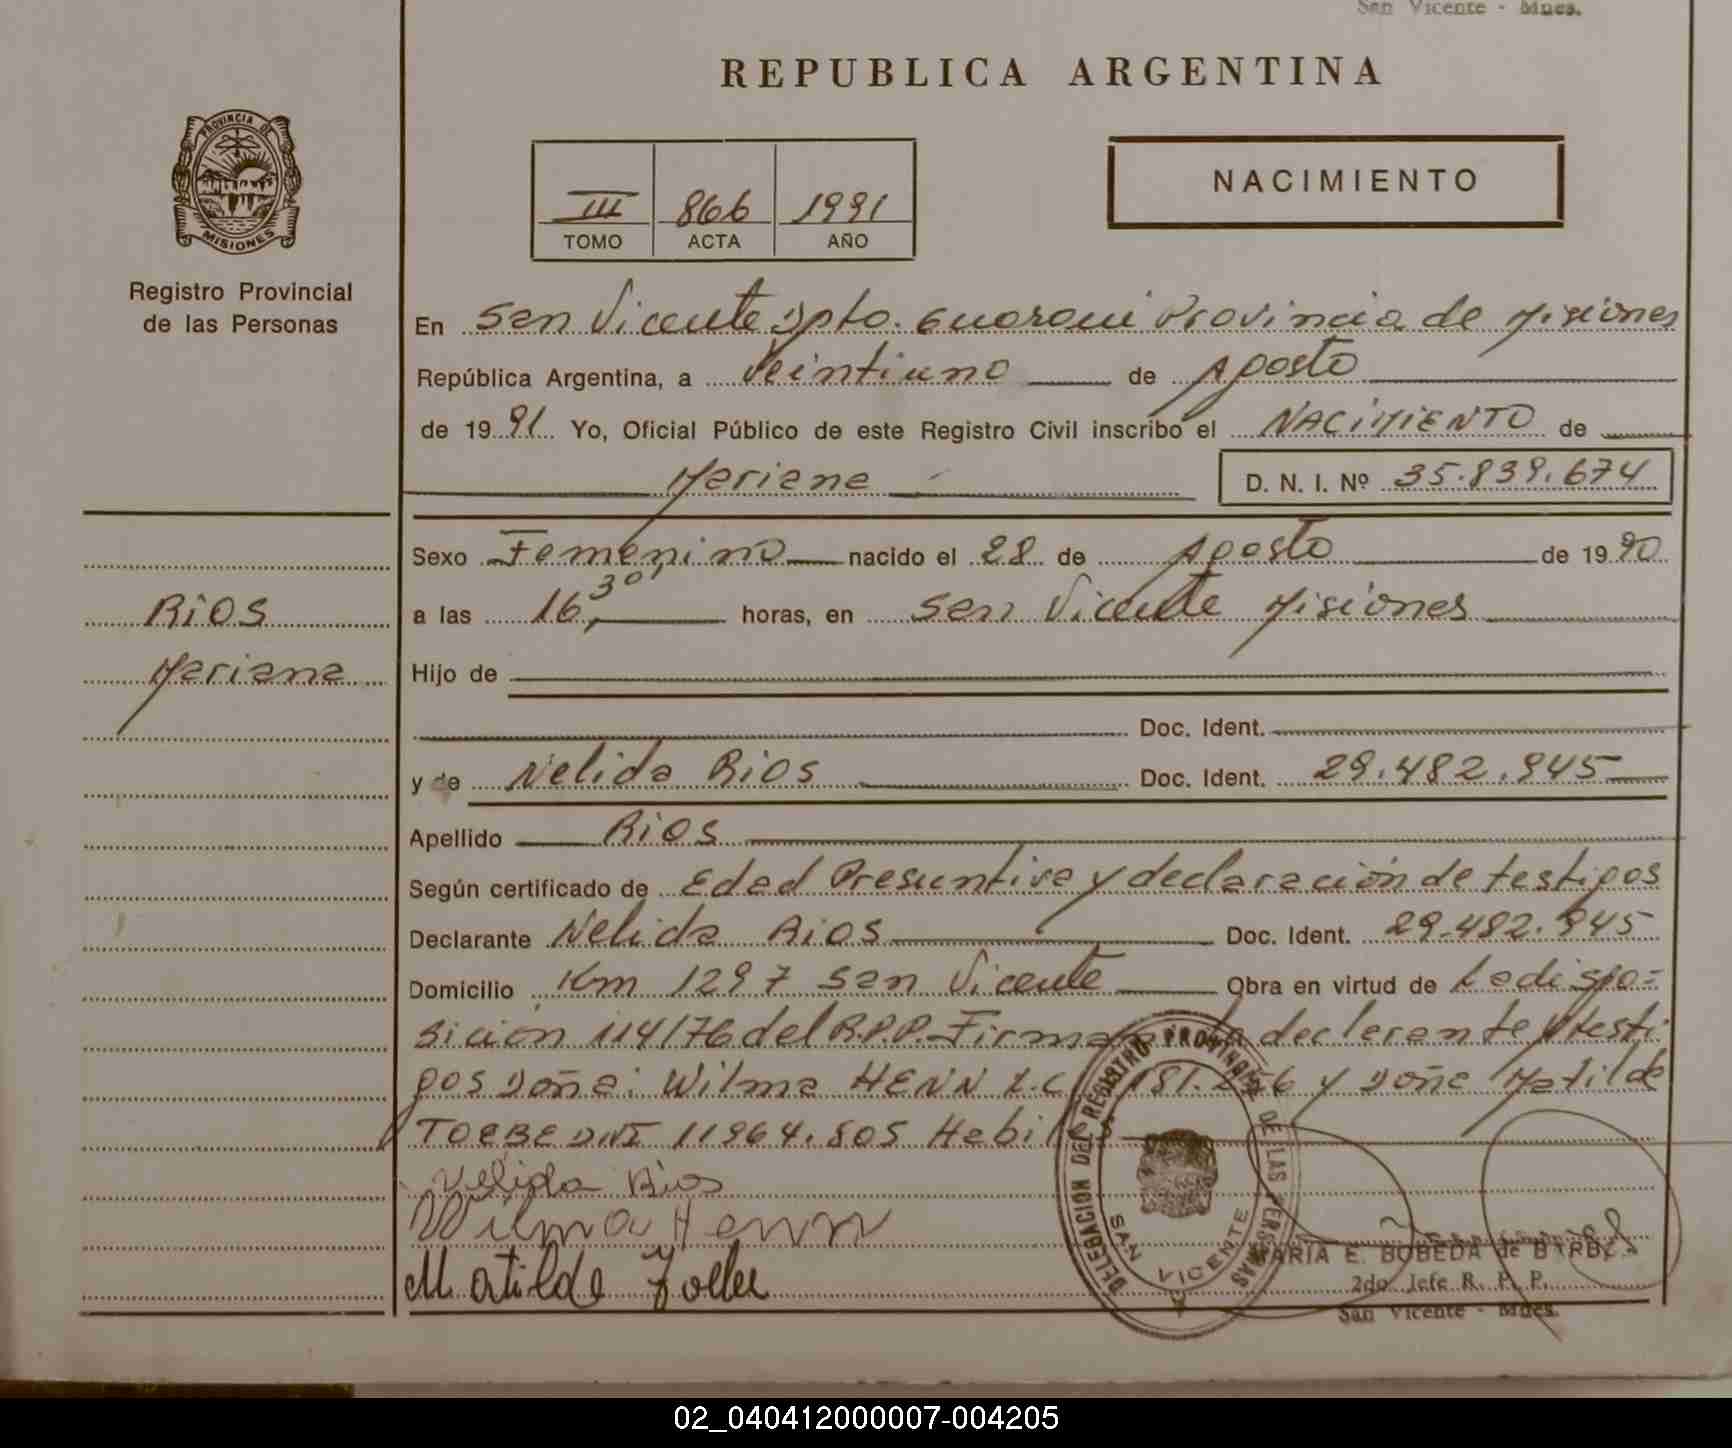 San Vicente - Mnes.
REPUBLICA ARGENTINA
PROVINCIA DE
MISIONES
Registro Provincial
de las Personas
III 866 1991
TOMO ACTA AÑO
NACIMIENTO
En San Vicente Dpto. Guarani Provincia de Misiones
República Argentina, a Veintiuno de Agosto
de 1991 Yo, Oficial Público de este Registro Civil inscribo el NACIMIENTO de
Mariana D. N. I. Nº 35.839.674
Sexo Femenino nacido el 28 de Agosto de 1990
a las 16,30 horas, en San Vicente Misiones
RIOS
Mariana
Hijo de
Doc. Ident.
y de Nelida Rios Doc. Ident. 29.482.945
Apellido Rios
Según certificado de Edad Presuntiva y declaración de testigos
Declarante Nelida Rios Doc. Ident. 29.482.945
Domicilio Km 1297 San Vicente Obra en virtud de La dispo=
sición 114/76 del R.P.P. Firma la declarante y testi
gos Doña: Wilma HENN L.C. y Doña Matilde
DNI 11964.805 Habiles
Nelida Rios
Wilma Henn
Matilde
DELEGACION DEL REGISTRO PROVINCIAL DE LAS PERSONAS
SAN VICENTE
MARIA E. BOBEDA de
2do Jefe R. P. P.
San Vicente - Mnes.
02_040412000007-004205